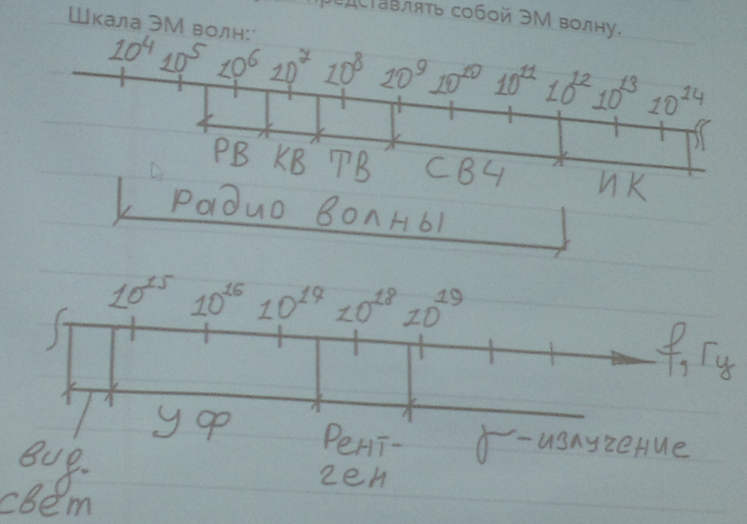 представлять собой ЭМ волну.
Шкала ЭМ волн:
10⁴ 10⁵ 10⁶ 10⁷ 10⁸ 10⁹ 10¹⁰ 10¹¹ 10¹² 10¹³ 10¹⁴
РВ КВ ТВ СВЧ ИК
Радио волны
10¹⁵ 10¹⁶ 10¹⁷ 10¹⁸ 10¹⁹
f, Гц
УФ Рент-
ген
γ-излучение
вид.
свет